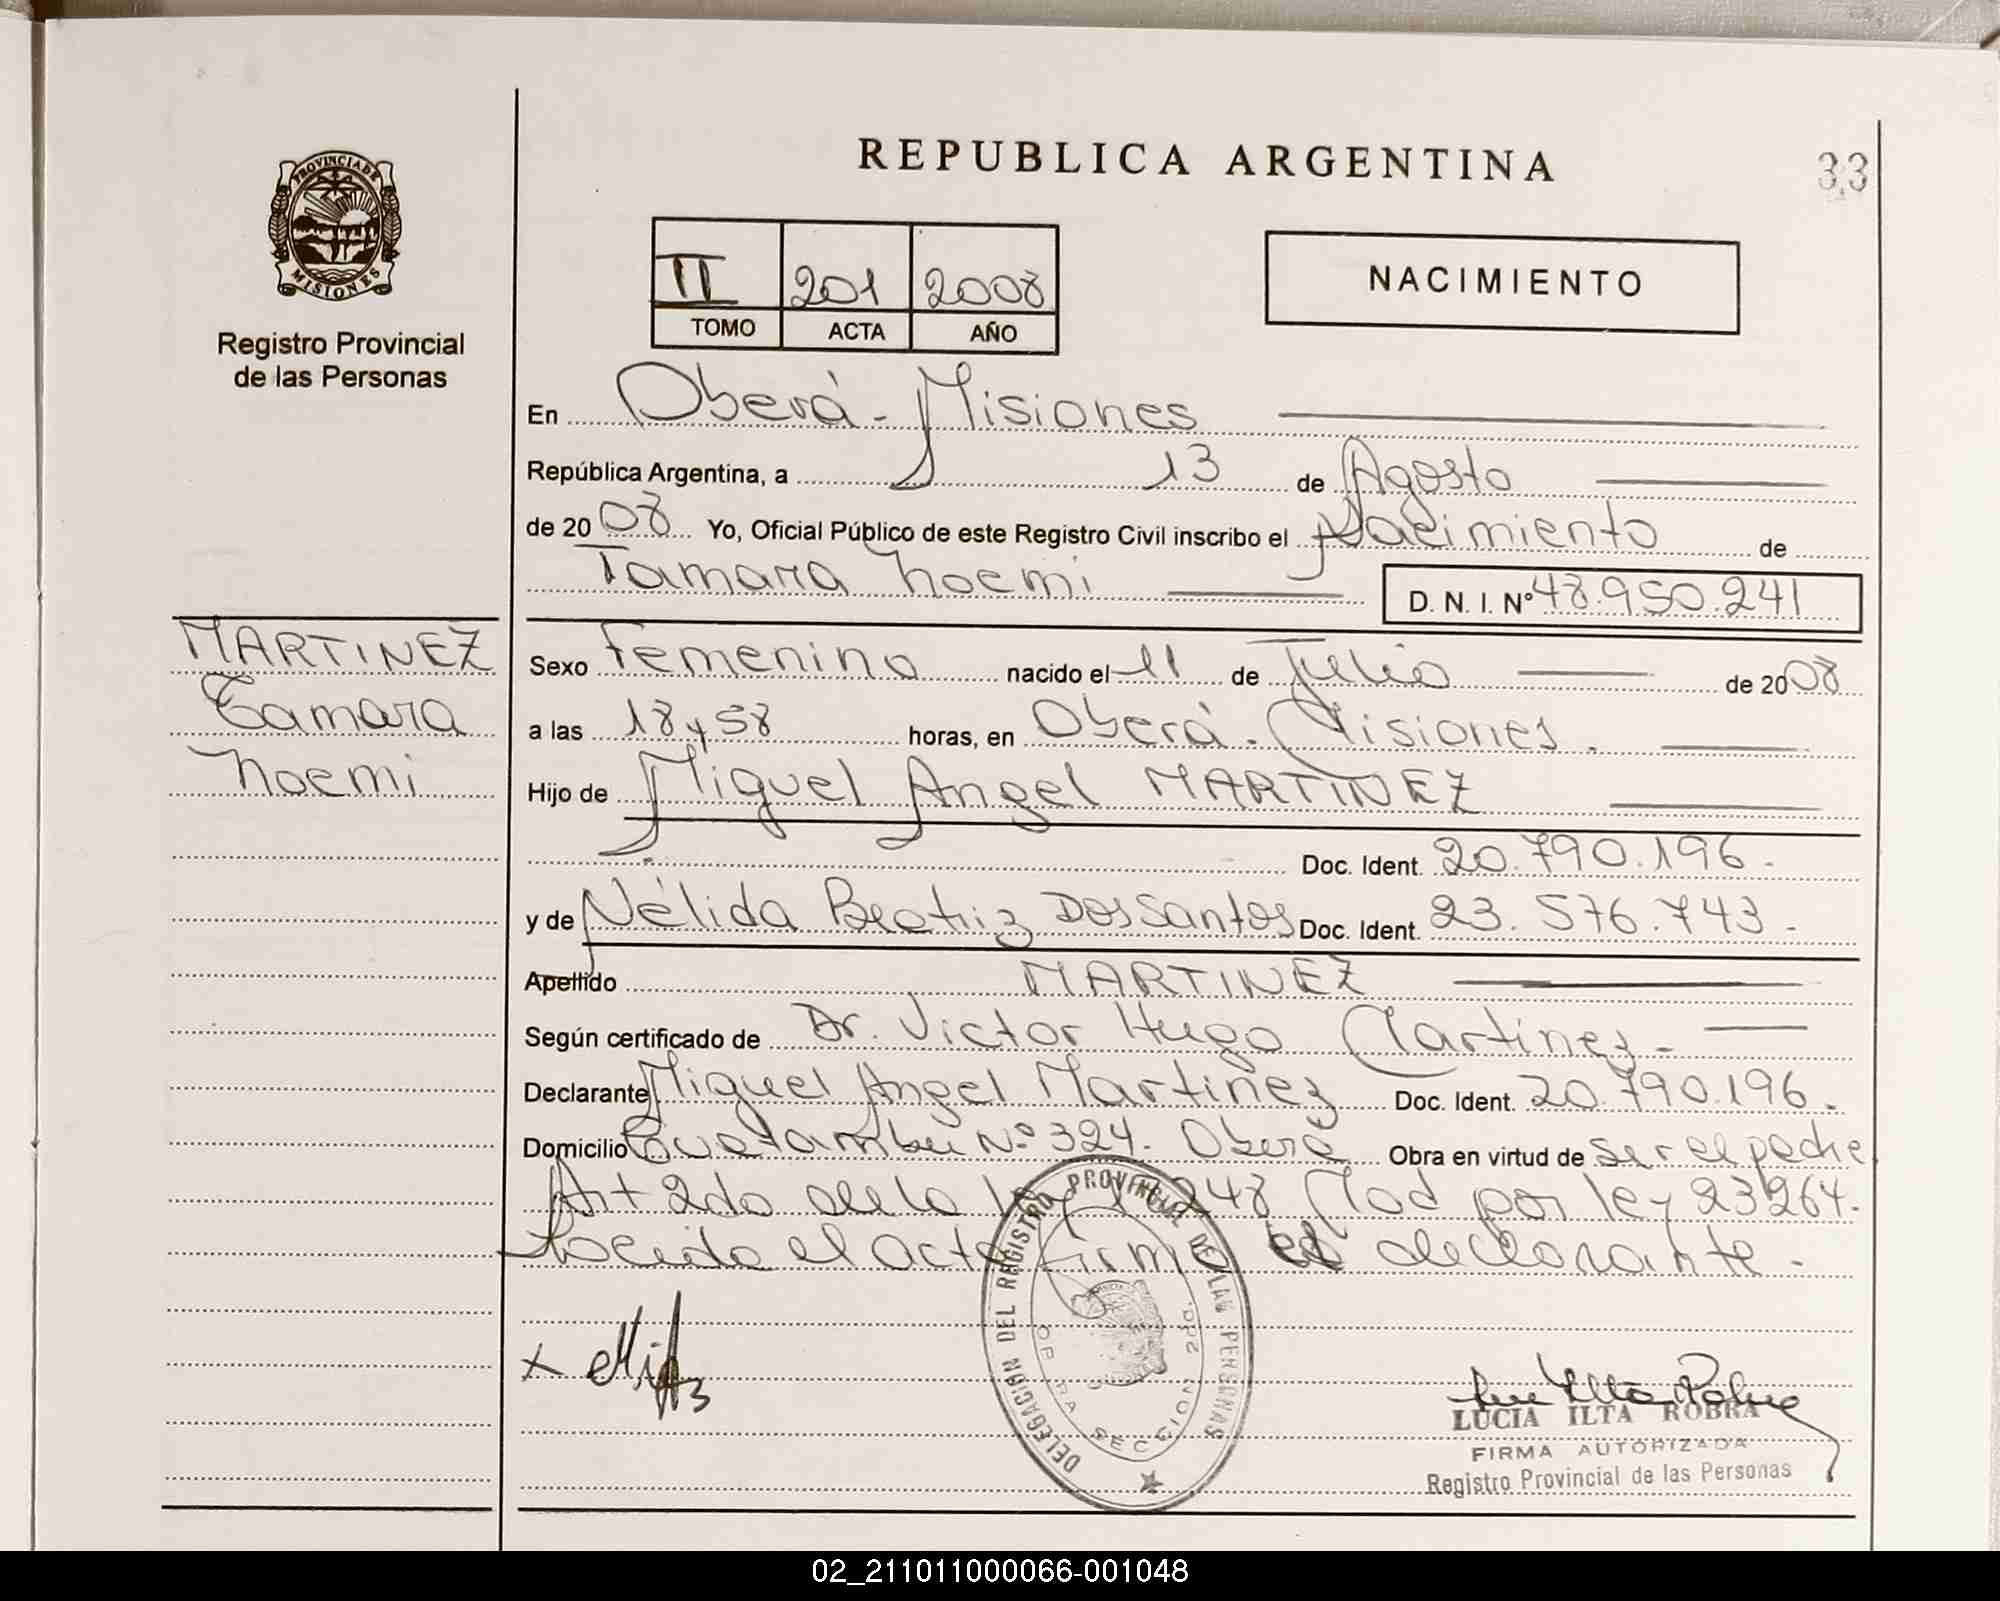 REPUBLICA ARGENTINA
33
PROVINCIA DE
MISIONES
Registro Provincial
de las Personas
II 201 2008
TOMO ACTA AÑO
NACIMIENTO
En Oberá - Misiones
República Argentina, a 13 de Agosto
de 2008 Yo, Oficial Público de este Registro Civil inscribo el Nacimiento de
Tamara Noemi D. N. I. Nº 48.950.241
MARTINEZ
Tamara
Noemi
Sexo Femenino nacido el 11 de Julio de 2008
a las 18 y 58 horas, en Oberá - Misiones.
Hijo de Miguel Angel MARTINEZ
Doc. Ident. 20.790.196.-
y de Nélida Beatriz Dos Santos Doc. Ident. 23.576.743.-
Apellido MARTINEZ
Según certificado de Dr. Victor Hugo Martinez.-
Declarante Miguel Angel Martinez Doc. Ident. 20.790.196.-
Domicilio Guatambu Nº 324. Oberá Obra en virtud de ser el padre
Art 2do de la ley 248 Mod por ley 23264.
Leida el acta firma el declarante.-
DELEGACION DEL REGISTRO PROVINCIAL DE LAS PERSONAS
SECCION 2da.
LUCIA ILTA ROBRA
FIRMA AUTORIZADA
Registro Provincial de las Personas
02_211011000066-001048